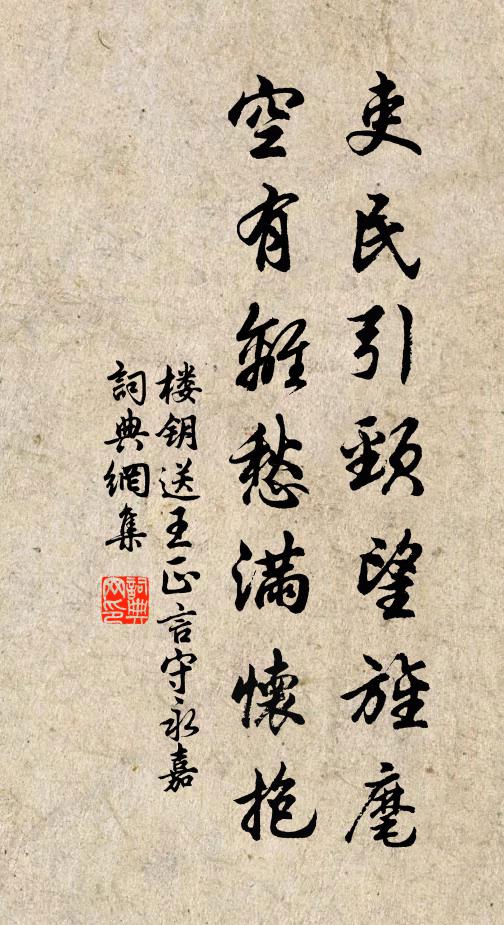 吏民引頸望旌麾
空有離愁滿懷抱
楼钥送王正言守永嘉
詞典網集
詞典网印